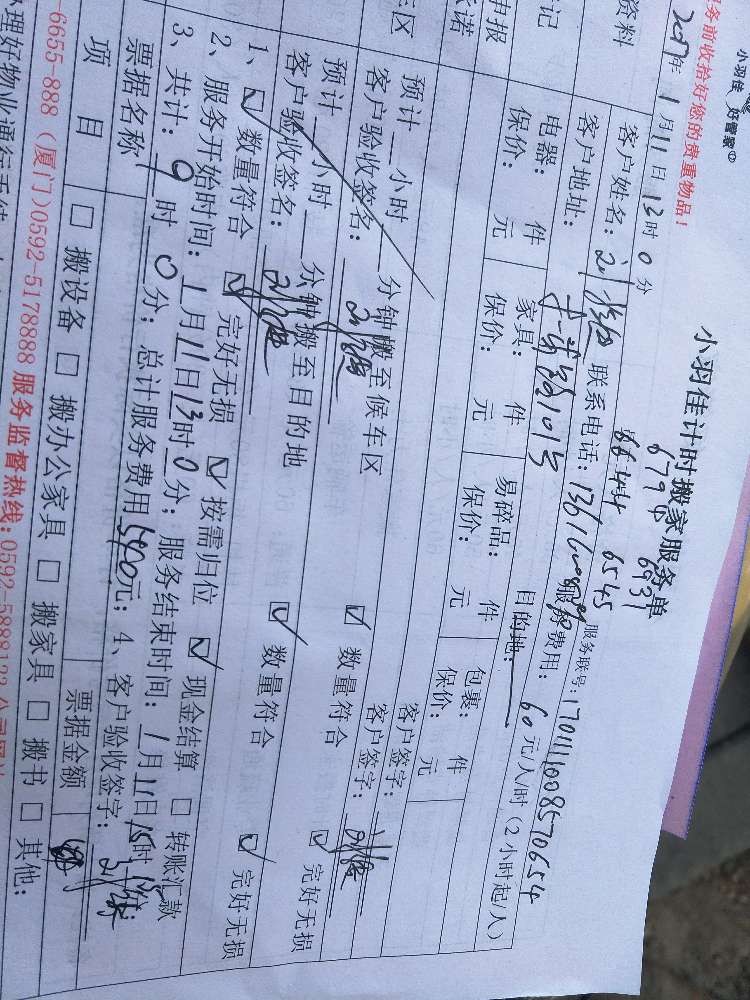 小羽佳 好管家
务前收拾好您的贵重物品!
小羽佳计时搬家服务单
679中 6931
664 6545
2017年 1月11日 13时 0分
服务联号: 1701111008570654
资料
客户姓名: 联系电话: 服务费用: 60元/人/时(2小时起/人)
客户地址: 101号
目的地:
记
电器: 件 家具: 件 易碎品: 件 包裹: 件
保价: 元 保价: 元 保价: 元 保价: 元
申报
承诺
客户签字:
客户签字:
车区
预计 小时 分钟搬至候车区
客户验收签名:
数量符合 完好无损
预计 小时 分钟搬至目的地
客户验收签名:
数量符合 完好无损
1、 数量符合 完好无损 按需归位 现金结算 转账汇款
2、服务开始时间: 1月11日13时0分; 服务结束时间: 1月11日15时 分;
3、共计: 9时0分; 总计服务费用540元; 4、客户验收签字:
票据名称 票据金额
项目 搬设备 搬办公家具 搬家具 搬书 其他:
-6655-888 (厦门)0592-5178888 服务监督热线:0592-5888123
办理好物业通行手续